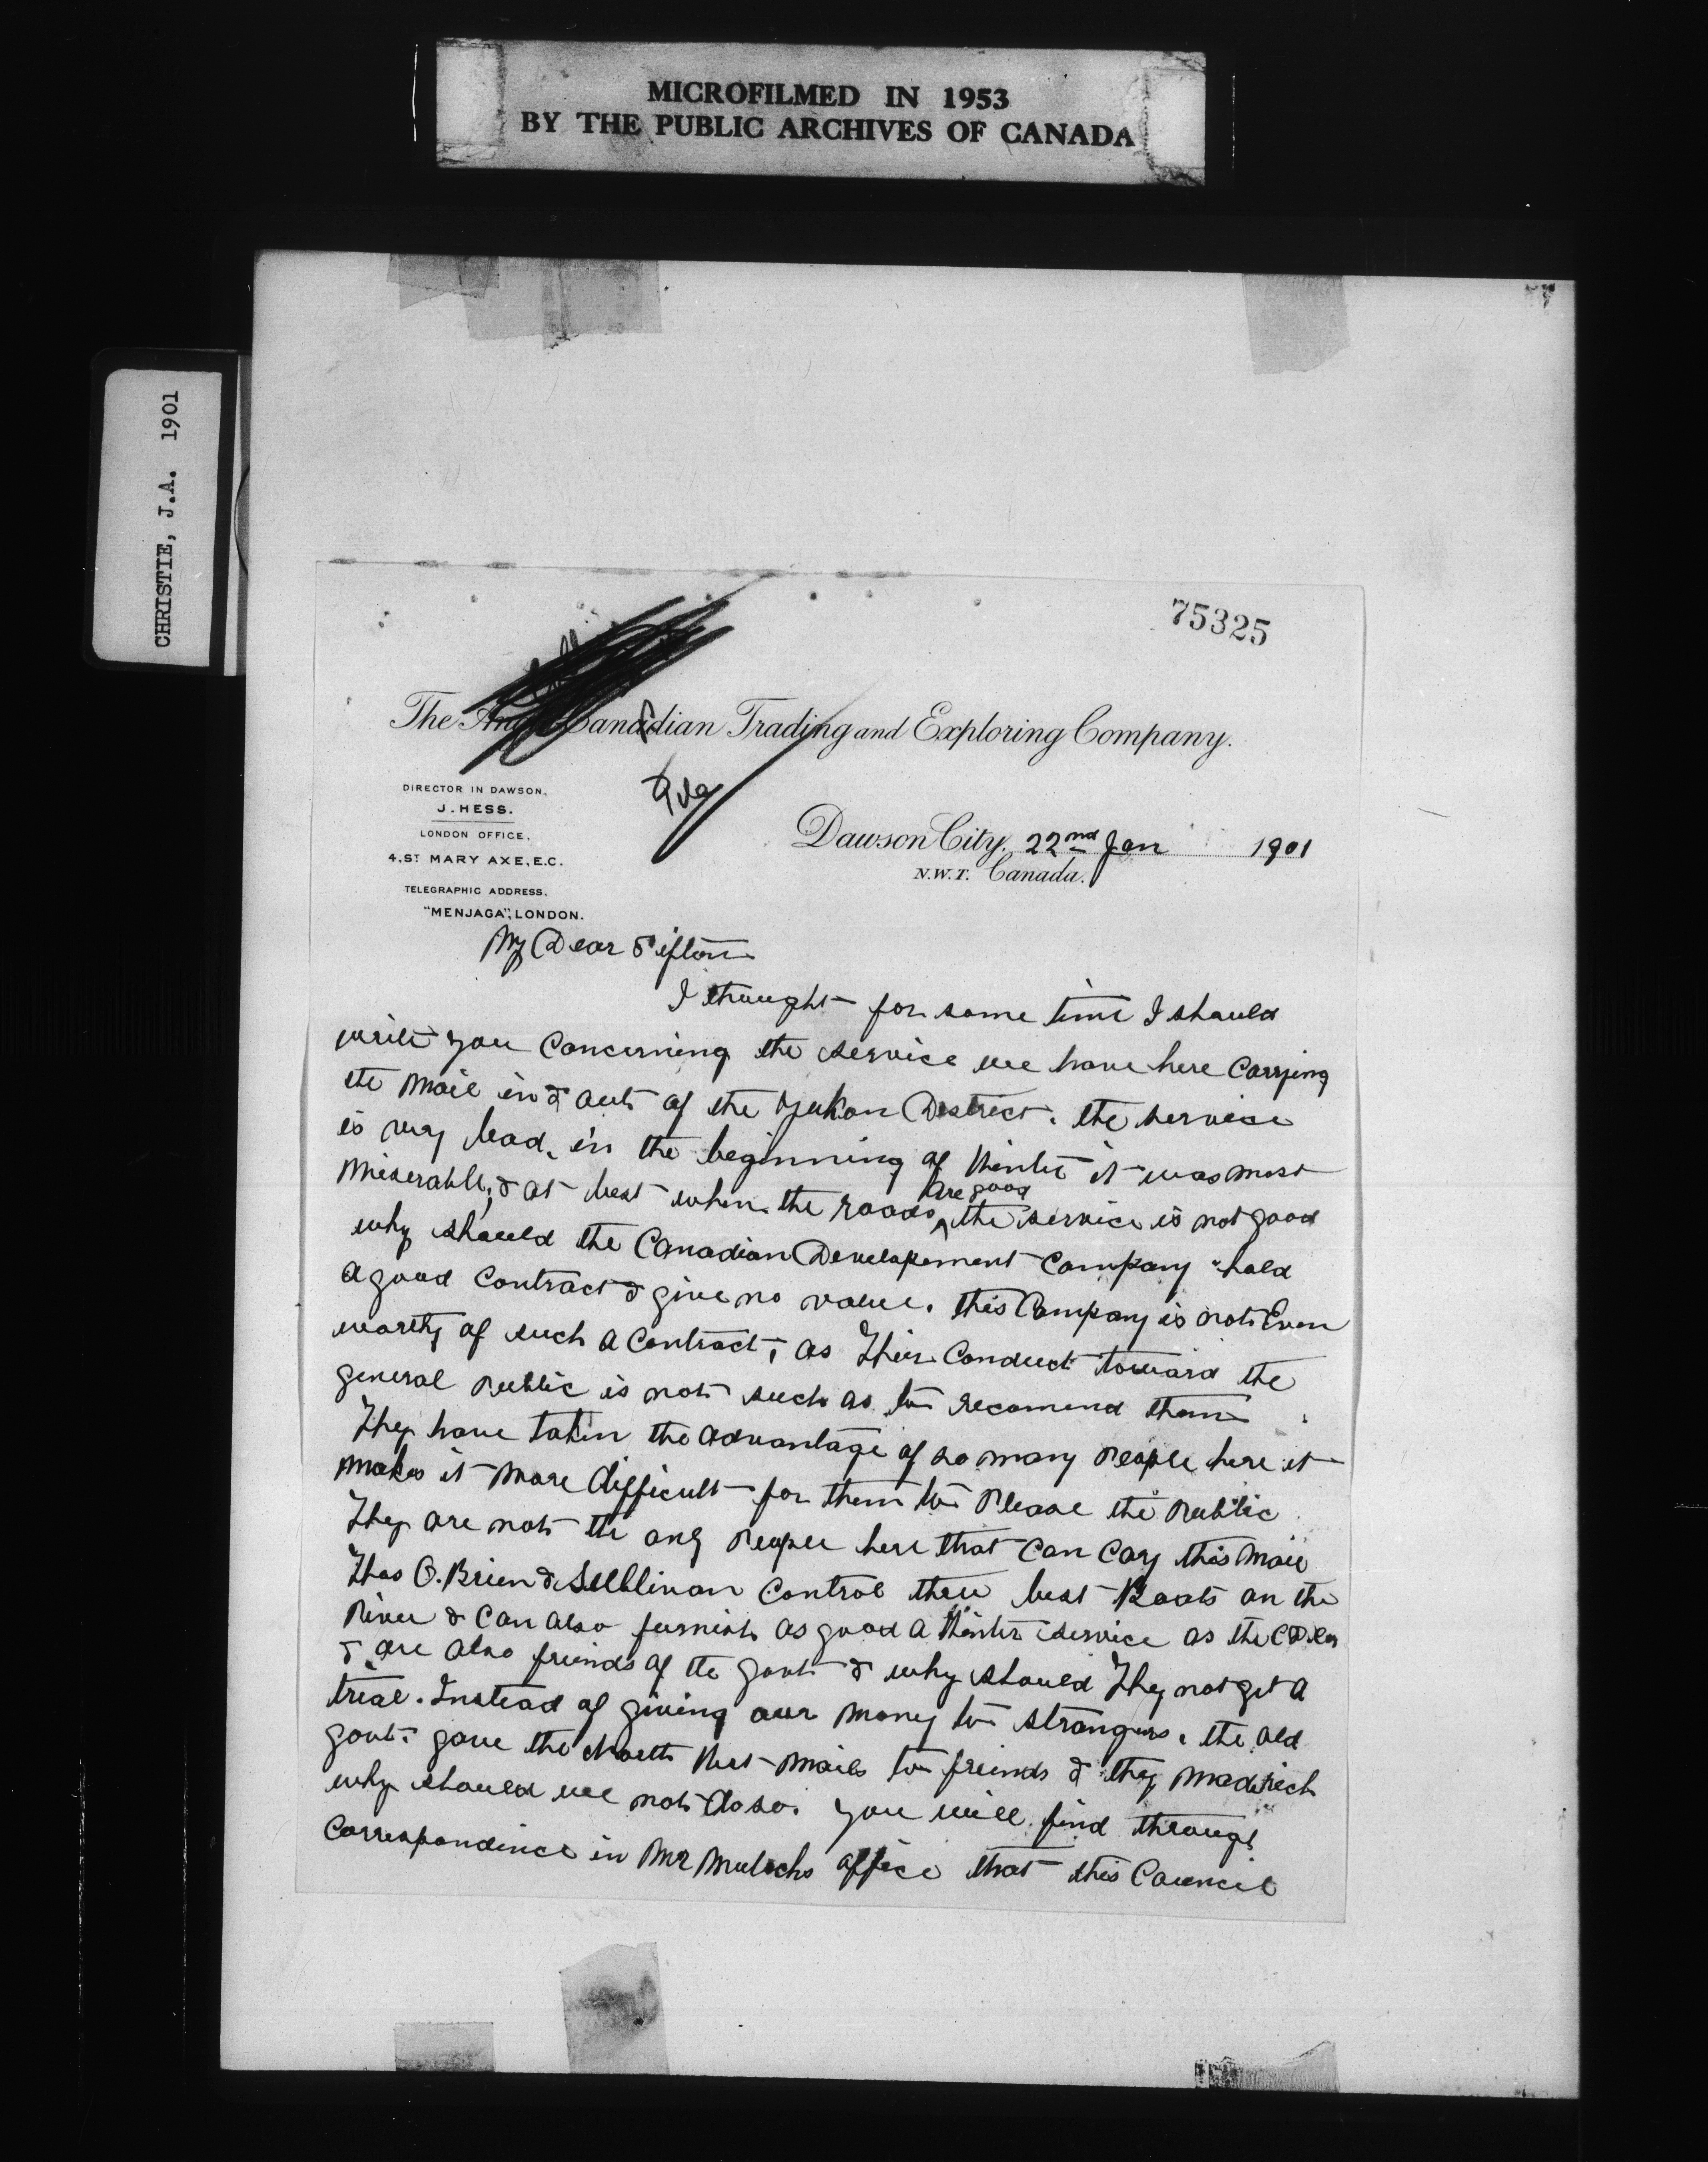 MICROFILMED IN 1953
BY THE PUBLIC ARCHIVES OF CANADA
CHRISTIE, J.A. 1901
75325
The Anglo Canadian Trading and Exploring Company.
DIRECTOR IN DAWSON.
J. HESS.
LONDON OFFICE.
4, ST MARY AXE, E.C.
TELEGRAPHIC ADDRESS.
"MENJAGA", LONDON.
Dawson City, 22nd Jan 1901
N.W.T. Canada.
My Dear Sifton
I thought for some time I should
write you concerning the service we have here carrying
the mail in & out of the Yukon District. the service
is very bad, in the beginning of Winter it was most
miserable, & at best when the roads are good the service is not good
why should the Canadian Developement Company hold
a good contract & give no value. this Company is not Even
worthy of such a contract, as Their conduct toward the
general public is not such as to recomend them
They have taken the advantage of so many people here it
makes it more difficult for them to Please the Public
They are not the only people here that can cary this mail
Thos O.Brien & Sullivan control three best Boats on the
River & can also furnish as good a Winter service as the C D Co
& are also friends of the govt & why should They not get a
trial. Instead of giving our money to strangers. the old
govt. gave the North West mails to friends & they made rich
why should we not do so. you will find through
Correspondence in Mr Mulochs office that this Council